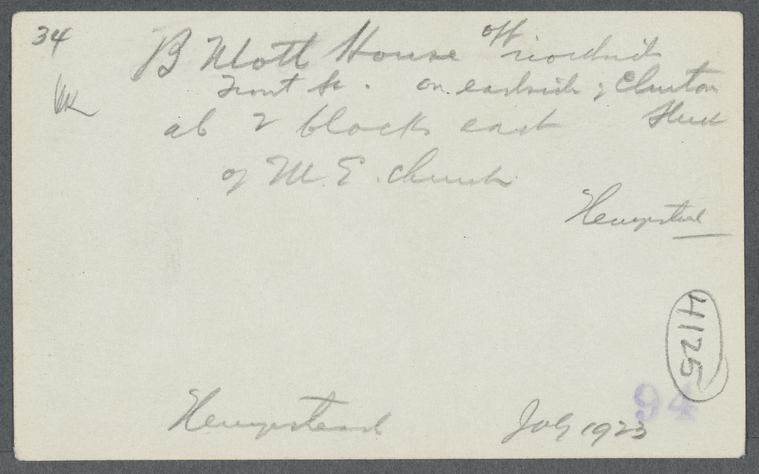 34
B Mott House off northside
Front St. on eastside of Clinton
ab 2 blocks east Street
of M.E. church
Hempstead
4125
94
Hempstead July 1923